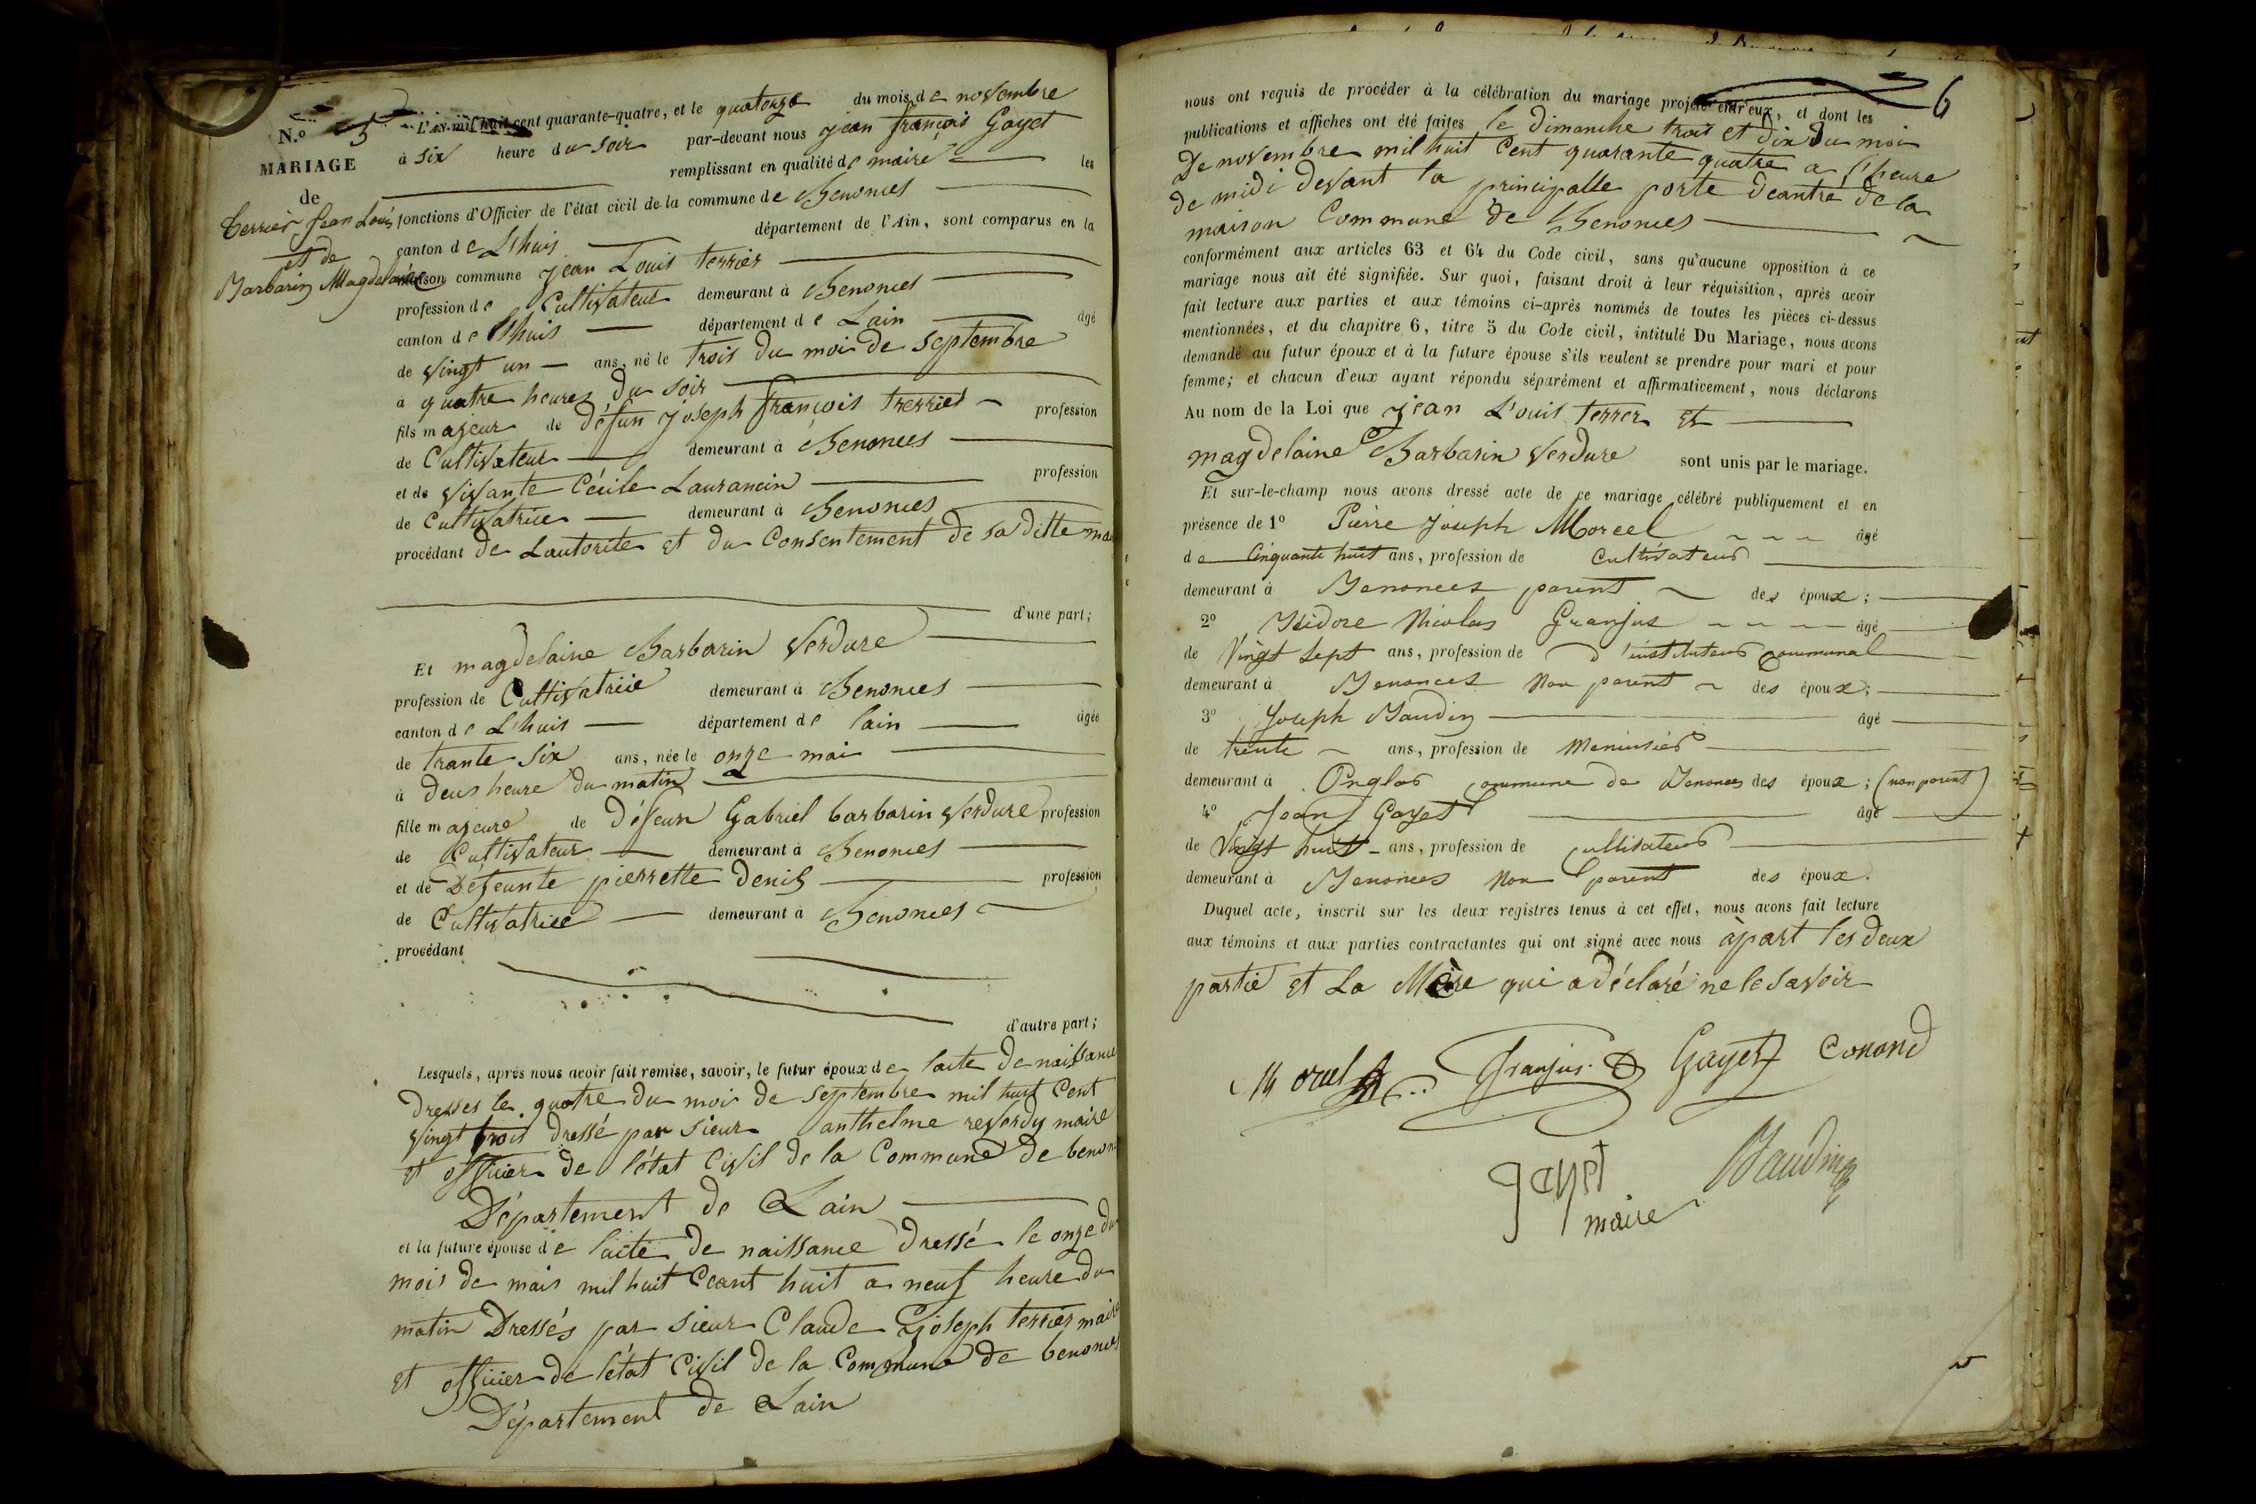 N.º 5
MARIAGE
de
Terrier Jean Louis
et de
Barbarin Magdelaine
L'AN mil huit cent quarante-quatre, et le quatorze du mois de novembre
à six heure du soir par-devant nous jean françois Gayet
remplissant en qualité de maire les
fonctions d'Officier de l'état civil de la commune de Benonces
canton de L'huis département de l'Ain, sont comparus en la
maison commune jean Louis terrier
profession de Cultivateur demeurant à Benonces
canton de L'huis département de Lain âgé
de vingt un ans, né le trois du moi de septembre
à quatre heures du soir
fils majeur de défun joseph françois terrier profession
de Cultivateur demeurant à Benonces
et de vivante Cécile Laurancin profession
de Cultivatrice demeurant à Benonces
procédant de Lautorite et du Consentement de sa ditte
d'une part;
Et magdelaine Barbarin Verdure
profession de Cultivatrice demeurant à Benonces
canton de L'huis département de lain âgée
de trante six ans, née le onze mai
à deus heure du matin
fille majeure de défeun Gabriel barbarin Verdure profession
de Cultivateur demeurant à Benonces
et de Défeunte pierrette denis profession
de Cultivatrice demeurant à Benonces
procédant
d'autre part;
Lesquels, après nous avoir fait remise, savoir, le futur époux de lacte de naissance
Dresses le quatre du moi de septembre mil huit Cent
vingt trois dressé par sieur anthelme reverdy maire
et officier de létat Civil de la Commune de
Département de Lain
et la future épouse de lacte de naissance dressé le onze du
mois de mais mil huit Ceant huit a neuf heure du
matin Dressés par sieur Claude joseph terrier
et officier de létat Civil de la Commune de benonces
Département de Lain
6
nous ont requis de procéder à la célébration du mariage projeté entr'eux, et dont les
publications et affiches ont été faites le dimanche trois et dix du moi
De novembre mil huit Cent quarante quatre a l'heure
de midi devant la principalle porte deantré de la
maison Commune de Benonces
conformément aux articles 63 et 64 du Code civil, sans qu'aucune opposition à ce
mariage nous ait été signifiée. Sur quoi, faisant droit à leur réquisition, après avoir
fait lecture aux parties et aux témoins ci-après nommés de toutes les pièces ci-dessus
mentionnées, et du chapitre 6, titre 5 du Code civil, intitulé Du Mariage, nous avons
demandé au futur époux et à la future épouse s'ils veulent se prendre pour mari et pour
femme; et chacun d'eux ayant répondu séparément et affirmativement, nous déclarons
Au nom de la Loi que jean Louis terrer et
magdelaine Barbarin Verdure sont unis par le mariage.
Et sur-le-champ nous avons dressé acte de ce mariage célébré publiquement et en
présence de 1º Pierre joseph Morcel âgé
de Cinquante huit ans, profession de cultivateur
demeurant à Benonces parent des époux;
2º Isidore Nicolas Granjus âgé
de Vingt sept ans, profession de d'instituteur communal
demeurant à Benonces Non parent des époux;
3º Joseph Baudin âgé
de trente ans, profession de Menuisier
demeurant à Onglas commune de Benonces des époux; (non parent)
4º Jean Gayet âgé
de Vingt huit ans, profession de cultivateur
demeurant à Benonces Non parent des époux.
Duquel acte, inscrit sur les deux registres tenus à cet effet, nous avons fait lecture
aux témoins et aux parties contractantes qui ont signé avec nous àpart les deux
partie et La Mère qui a déclaré ne le savoir
Granjus Gayet Conand
gayet
maire
Baudin